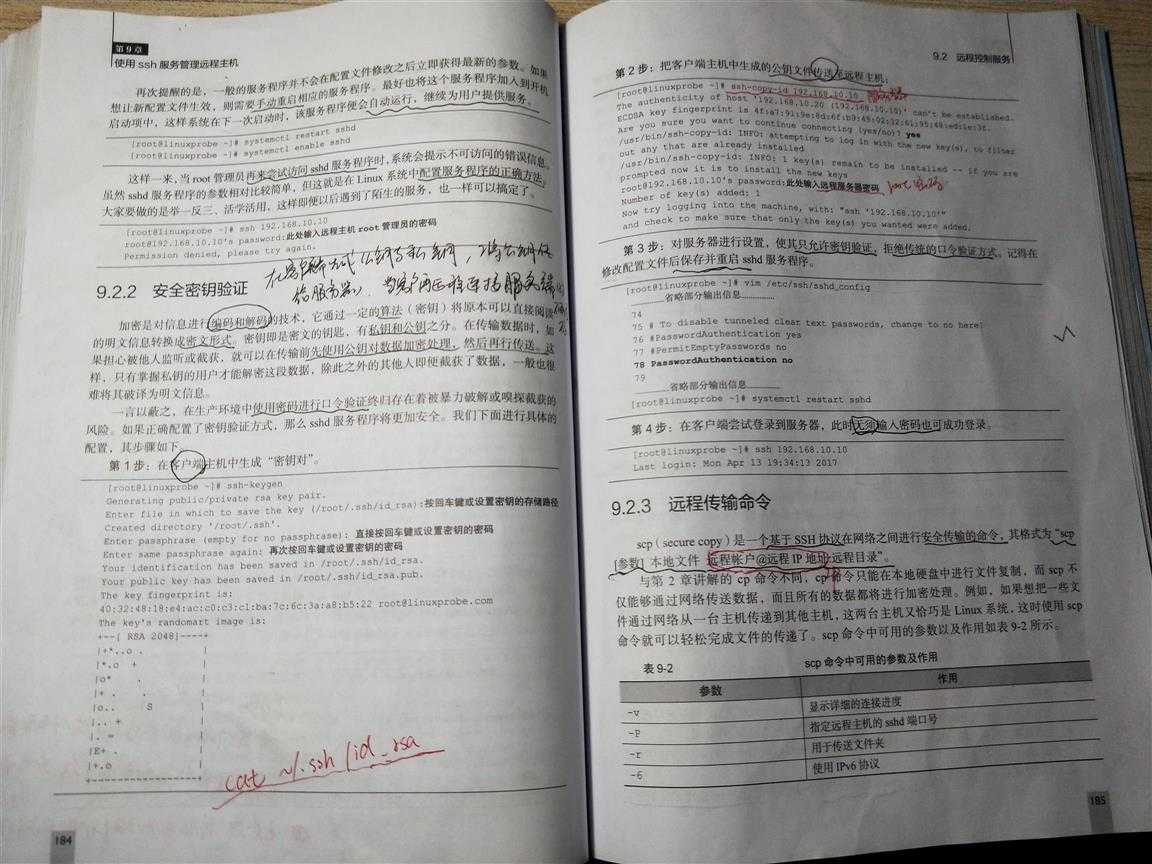 第9章
使用 ssh 服务管理远程主机
再次提醒的是，一般的服务程序并不会在配置文件修改之后立即获得最新的参数。如果
想让新配置文件生效，则需要手动重启相应的服务程序。最好也将这个服务程序加入到开机
启动项中，这样系统在下一次启动时，该服务程序便会自动运行，继续为用户提供服务。
[root@linuxprobe ~]# systemctl restart sshd
[root@linuxprobe ~]# systemctl enable sshd
这样一来，当 root 管理员再来尝试访问 sshd 服务程序时，系统会提示不可访问的错误信息。
虽然 sshd 服务程序的参数相对比较简单，但这就是在 Linux 系统中配置服务程序的正确方法。
大家要做的是举一反三、活学活用，这样即便以后遇到了陌生的服务，也一样可以搞定了。
[root@linuxprobe ~]# ssh 192.168.10.10
root@192.168.10.10's password:此处输入远程主机 root 管理员的密码
Permission denied, please try again.
9.2.2 安全密钥验证
加密是对信息进行编码和解码的技术，它通过一定的算法（密钥）将原本可以直接阅读
的明文信息转换成密文形式。密钥即是密文的钥匙，有私钥和公钥之分。在传输数据时，如
果担心被他人监听或截获，就可以在传输前先使用公钥对数据加密处理，然后再行传送。这
样，只有掌握私钥的用户才能解密这段数据，除此之外的其他人即便截获了数据，一般也很
难将其破译为明文信息。
一言以蔽之，在生产环境中使用密码进行口令验证终归存在着被暴力破解或嗅探截获的
风险。如果正确配置了密钥验证方式，那么 sshd 服务程序将更加安全。我们下面进行具体的
配置，其步骤如下。
第 1 步：在客户端主机中生成“密钥对”。
[root@linuxprobe ~]# ssh-keygen
Generating public/private rsa key pair.
Enter file in which to save the key (/root/.ssh/id_rsa):按回车键或设置密钥的存储路径
Created directory '/root/.ssh'.
Enter passphrase (empty for no passphrase): 直接按回车键或设置密钥的密码
Enter same passphrase again: 再次按回车键或设置密钥的密码
Your identification has been saved in /root/.ssh/id_rsa.
Your public key has been saved in /root/.ssh/id_rsa.pub.
The key fingerprint is:
40:32:48:18:e4:ac:c0:c3:c1:ba:7c:6c:3a:a8:b5:22 root@linuxprobe.com
The key's randomart image is:
+--[ RSA 2048]----+
|+*..o . |
|*.o + |
|o* . |
|+ . . |
|o.. S |
|.. + |
|. = |
|E+ . |
|+.o |
+-----------------+
cat ~/.ssh/id_rsa
184
9.2 远程控制服务
第 2 步：把客户端主机中生成的公钥文件传送至远程主机：
[root@linuxprobe ~]# ssh-copy-id 192.168.10.10
The authenticity of host '192.168.10.20 (192.168.10.10)' can't be established.
ECDSA key fingerprint is 4f:a7:91:9e:8d:6f:b9:48:02:32:61:95:48:ed:1e:3f.
Are you sure you want to continue connecting (yes/no)? yes
/usr/bin/ssh-copy-id: INFO: attempting to log in with the new key(s), to filter
out any that are already installed
/usr/bin/ssh-copy-id: INFO: 1 key(s) remain to be installed -- if you are
prompted now it is to install the new keys
root@192.168.10.10's password:此处输入远程服务器密码
Number of key(s) added: 1
Now try logging into the machine, with: "ssh '192.168.10.10'"
and check to make sure that only the key(s) you wanted were added.
第 3 步：对服务器进行设置，使其只允许密钥验证，拒绝传统的口令验证方式。记得在
修改配置文件后保存并重启 sshd 服务程序。
[root@linuxprobe ~]# vim /etc/ssh/sshd_config
………………省略部分输出信息………………
74
75 # To disable tunneled clear text passwords, change to no here!
76 #PasswordAuthentication yes
77 #PermitEmptyPasswords no
78 PasswordAuthentication no
79
………………省略部分输出信息………………
[root@linuxprobe ~]# systemctl restart sshd
第 4 步：在客户端尝试登录到服务器，此时无须输入密码也可成功登录。
[root@linuxprobe ~]# ssh 192.168.10.10
Last login: Mon Apr 13 19:34:13 2017
9.2.3 远程传输命令
scp（secure copy）是一个基于 SSH 协议在网络之间进行安全传输的命令，其格式为“scp
[参数] 本地文件 远程帐户@远程 IP 地址:远程目录”。
与第 2 章讲解的 cp 命令不同，cp 命令只能在本地硬盘中进行文件复制，而 scp 不
仅能够通过网络传送数据，而且所有的数据都将进行加密处理。例如，如果想把一些文
件通过网络从一台主机传递到其他主机，这两台主机又恰巧是 Linux 系统，这时使用 scp
命令就可以轻松完成文件的传递了。scp 命令中可用的参数以及作用如表 9-2 所示。
表 9-2 scp 命令中可用的参数及作用
参数 作用
-v 显示详细的连接进度
-P 指定远程主机的 sshd 端口号
-r 用于传送文件夹
-6 使用 IPv6 协议
185